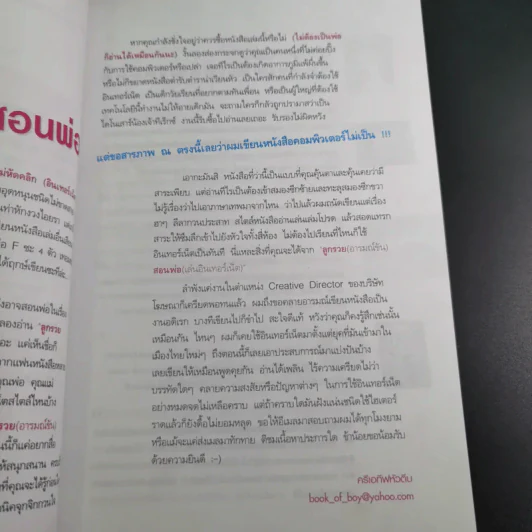 สอนพ่อ
หากคุณกำลังชั่งใจอยู่ว่าควรซื้อหนังสือเล่มนี้หรือไม่ (ไม่ต้องเป็นพ่อ
ก็อ่านได้เหมือนกันนะ) งั้นลองส่องกระจกดูว่าคุณเป็นคนหนึ่งที่ไม่ค่อยปิ๊ง
กับการใช้คอมพิวเตอร์หรือเปล่า เจอทีไรเป็นต้องเกิดอาการภูมิแพ้ขึ้นขึ้น
หรือไม่ก็ขยาดหนังสือตำรับตำราน่าเวียนหัว เป็นใครสักคนที่กำลังจำต้องใช้
อินเทอร์เน็ต เป็นเด็กวัยเรียนที่อยากตามทันเพื่อน หรือเป็นผู้ใหญ่ที่ต้องใช้
เทคโนโลยีนี้ทำงานไม่ให้อายเด็กมัน จะถามใครก็กลัวถูกปรามาสว่าเป็น
ไดโนเสาร์น้องเจ้าทีเร็กซ์ งานนี้รีบซื้อไปอ่านเลยเถอะ รับรองไม่ผิดหวัง
แต่ขอสารภาพ ณ ตรงนี้เลยว่าผมเขียนหนังสือคอมพิวเตอร์ไม่เป็น !!!
เอากะมันสิ หนังสือที่ว่านี้เป็นแบบที่คุณคุ้นตาและคุ้นเคยว่ามี
สาระเพียบ แต่อ่านทีไรเป็นต้องเข้าสมองซีกซ้ายและทะลุสมองซีกขวา
ไม่รู้เรื่องว่าไปเอาภาษาเทพมาจากไหน ว่าไปแล้วผมถนัดเขียนแต่เรื่อง
ฮาๆ ลีลากวนประสาท สไตล์หนังสืออ่านเล่นล่มโปรด แล้วสอดแทรก
สาระให้ซึมลึกเข้าไปยังหัวใจทั้งสี่ห้อง ไม่ต้องไปเรียนที่ไหนก็ใช้
อินเทอร์เน็ตเป็นทันที นี่แหละสิ่งที่คุณจะได้จาก 'ลูกรวย(อารมณ์ขัน)
สอนพ่อ(เล่นอินเทอร์เน็ต)'
ลำพังแค่งานในตำแหน่ง Creative Director ของบริษัท
โฆษณาก็เครียดพอทนแล้ว ผมถึงขอคลายอารมณ์เขียนหนังสือเป็น
งานอดิเรก บางทีเขียนไปก็ขำไป สะใจดีแท้ หวังว่าคุณก็คงรู้สึกเช่นนั้น
เหมือนกัน ไหนๆ ผมก็เคยใช้อินเทอร์เน็ตมาตั้งแต่ยุคที่มันเข้ามาใน
เมืองไทยใหม่ๆ ถึงตอนนี้ก็เลยเอาประสบการณ์มาแบ่งปันบ้าง
เลยเขียนให้เหมือนพูดคุยกัน อ่านได้เพลิน ไร้ความเครียดไม่ว่า
บรรทัดใดๆ คลายความสงสัยหรือปัญหาต่างๆ ในการใช้อินเทอร์เน็ต
อย่างหมดจดไม่เหลือคราบ แต่ถ้าคราบใดมันฝังแน่นชนิดใช้ไฮเตอร์
ราดแล้วก็ยังดื้อไม่ยอมหลุด ขอให้อีเมลมาสอบถามผมได้ทุกโมงยาม
หรือแม้จะแค่ส่งเมลมาทักทาย ติชมเนื้อหาประการใด ข้าน้อยขอน้อมรับ
ด้วยความยินดี :-)
ครีเอทีฟหัวตีบ
book_of_boy@yahoo.com